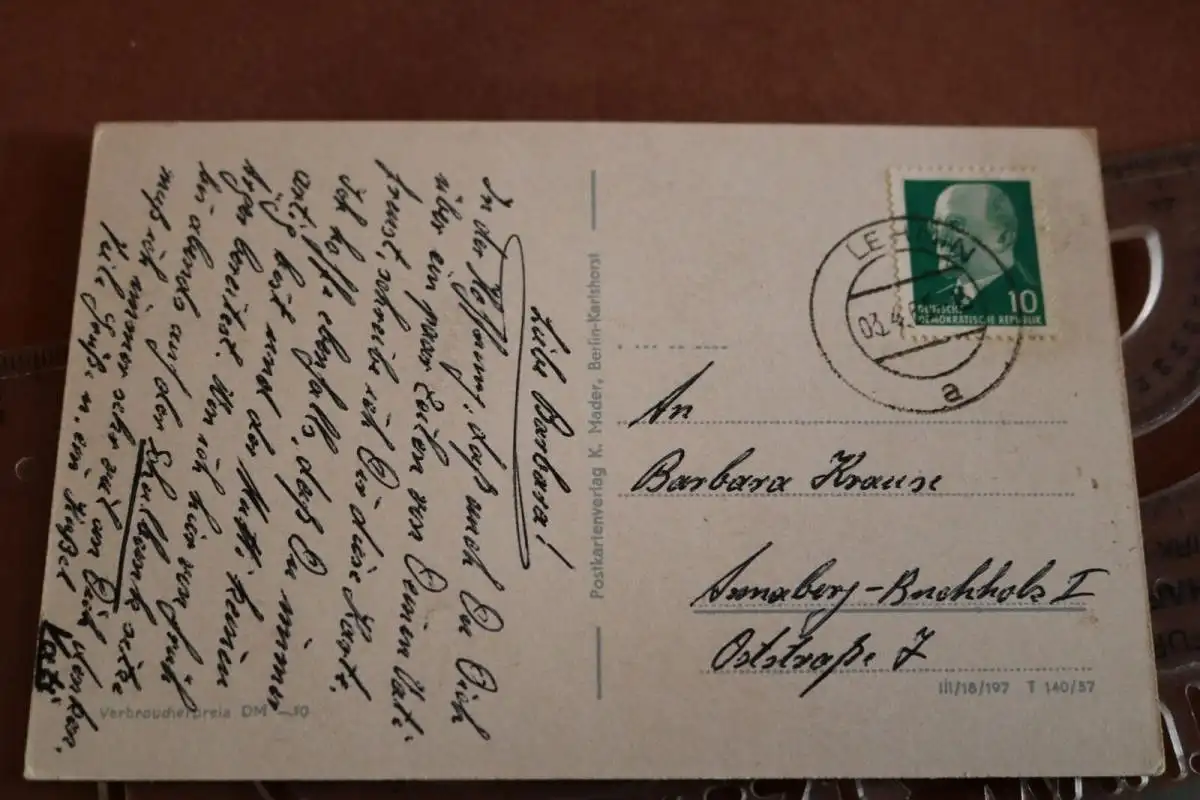 Liebe Barbara!
In der Hoffnung, daß auch Du Dich
über ein paar Zeilen von Deinem Vati
freust, schreibe ich Dir diese Karte.
Ich hoffe ebenfalls, daß Du immer
artig bist und der Mutti keinen
Ärger bereitest. Wenn ich hier von früh
bis abends auf der Schulbank sitze
muß ich immer sehr viel an Dich denken.
Viele Grüße u. ein Küßel
Vati
Verbraucherpreis DM -,10
Postkartenverlag K. Mader, Berlin-Karlshorst
LEHNIN
03.4.6
a
10
DEUTSCHE
DEMOKRATISCHE REPUBLIK
An
Barbara Krause
Annaberg-Buchholz I
Oststraße 7
III/18/197 T 140/57